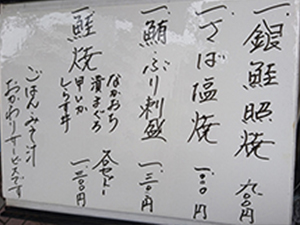 一、銀鮭照焼 九〇〇円
一、さば塩焼 一、〇〇〇円
一、鮪ぶり刺盛 一、三〇〇円
一、鮭焼 なかおち
漬まぐろ
甘いか
しらす丼
各セット 一、三〇〇円
ごはん・みそ汁
おかわりサービスです